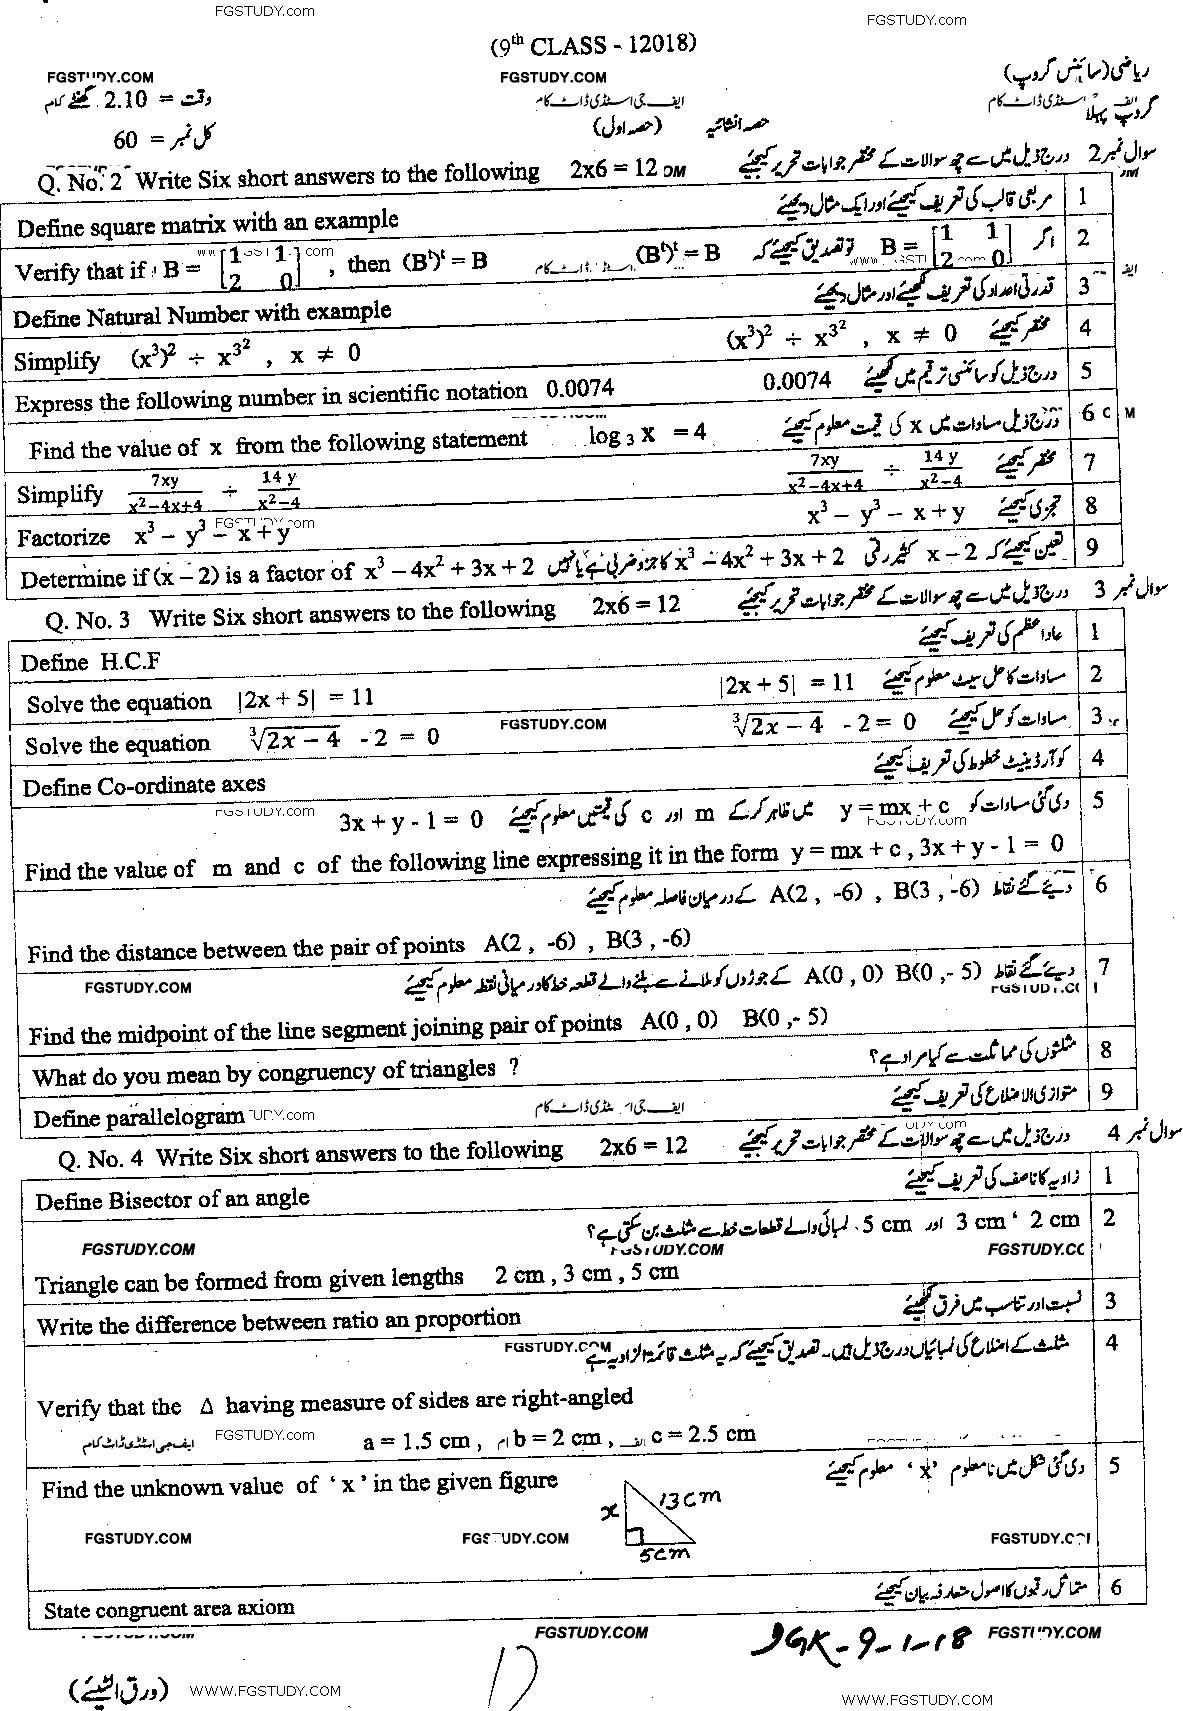 FGSTUDY.com
FGSTUDY.com
(9th CLASS - 12018)
FGSTUDY.COM
FGSTUDY.COM
ریاضی (سائنس گروپ)
وقت = 2.10 گھنٹے
ایف جی اسٹڈی ڈاٹ کام
گروپ پہلا
کل نمبر = 60
(حصہ اول)
حصہ انشائیہ
سوال نمبر 2 درج ذیل میں سے چھ سوالات کے مختصر جوابات تحریر کیجئے
Q. No. 2 Write Six short answers to the following 2x6 = 12
1 مربعی قالب کی تعریف کیجئے اور ایک مثال دیجئے
Define square matrix with an example
2 اگر B = [1 1; 2 0] تو تصدیق کیجئے کہ (Bᵗ)ᵗ = B
Verify that if B = [1 1; 2 0] , then (Bᵗ)ᵗ = B
3 قدرتی اعداد کی تعریف کیجئے اور مثال دیجئے
Define Natural Number with example
4 مختصر کیجئے (x³)² ÷ x^3² , x ≠ 0
Simplify (x³)² ÷ x^3² , x ≠ 0
5 درج ذیل کو سائنسی ترقیم میں لکھیئے 0.0074
Express the following number in scientific notation 0.0074
6 درج ذیل مساوات میں x کی قیمت معلوم کیجئے
Find the value of x from the following statement log₃ x = 4
7 مختصر کیجئے 7xy/(x²−4x+4) ÷ 14y/(x²−4)
Simplify 7xy/(x²−4x+4) ÷ 14y/(x²−4)
8 تجزی کیجئے x³ − y³ − x + y
Factorize x³ − y³ − x + y
9 تعین کیجئے کہ x − 2 کثیر رقمی x³ − 4x² + 3x + 2 کا جزو ضربی ہے یا نہیں
Determine if (x − 2) is a factor of x³ − 4x² + 3x + 2
سوال نمبر 3 درج ذیل میں سے چھ سوالات کے مختصر جوابات تحریر کیجئے
Q. No. 3 Write Six short answers to the following 2x6 = 12
1 عاد اعظم کی تعریف کیجئے
Define H.C.F
2 مساوات کا حل سیٹ معلوم کیجئے |2x + 5| = 11
Solve the equation |2x + 5| = 11
3 مساوات کو حل کیجئے ∛(2x − 4) - 2 = 0
Solve the equation ∛(2x − 4) - 2 = 0
FGSTUDY.COM
4 کوآرڈینیٹ خطوط کی تعریف کیجئے
Define Co-ordinate axes
5 دی گئی مساوات کو y = mx + c میں ظاہر کر کے m اور c کی قیمتیں معلوم کیجئے 3x + y - 1 = 0
Find the value of m and c of the following line expressing it in the form y = mx + c , 3x + y - 1 = 0
6 دیئے گئے نقاط A(2 , -6) , B(3 , -6) کے درمیان فاصلہ معلوم کیجئے
Find the distance between the pair of points A(2 , -6) , B(3 , -6)
7 دیئے گئے نقاط A(0 , 0) B(0 ,- 5) کے جوڑوں کو ملانے سے بننے والے قطعہ خط کا درمیانی نقطہ معلوم کیجئے
FGSTUDY.COM
Find the midpoint of the line segment joining pair of points A(0 , 0) B(0 ,- 5)
8 مثلثوں کی مماثلت سے کیا مراد ہے؟
What do you mean by congruency of triangles ?
9 متوازی الاضلاع کی تعریف کیجئے
Define parallelogram
سوال نمبر 4 درج ذیل میں سے چھ سوالات کے مختصر جوابات تحریر کیجئے
Q. No. 4 Write Six short answers to the following 2x6 = 12
1 زاویہ کا ناصف کی تعریف کیجئے
Define Bisector of an angle
2 2 cm ، 3 cm اور 5 cm لمبائی والے قطعات خط سے مثلث بن سکتی ہے؟
FGSTUDY.COM
FGSTUDY.COM
Triangle can be formed from given lengths 2 cm , 3 cm , 5 cm
3 نسبت اور تناسب میں فرق لکھیئے
Write the difference between ratio an proportion
4 مثلث کے اضلاع کی لمبائیاں درج ذیل ہیں۔ تصدیق کیجئے کہ یہ مثلث قائمۃ الزاویہ ہے
FGSTUDY.COM
Verify that the Δ having measure of sides are right-angled
ایف جی اسٹڈی ڈاٹ کام
FGSTUDY.com
a = 1.5 cm , b = 2 cm , c = 2.5 cm
5 دی گئی شکل میں نامعلوم ‘x’ معلوم کیجئے
Find the unknown value of ‘ x ’ in the given figure
x
13 cm
5cm
FGSTUDY.COM
FGSTUDY.COM
6 متماثل رقبوں کا اصول متعارفہ بیان کیجئے
State congruent area axiom
FGSTUDY.COM
DGK-9-1-18
FGSTUDY.COM
(ورق الٹیئے)
WWW.FGSTUDY.COM
WWW.FGSTUDY.COM